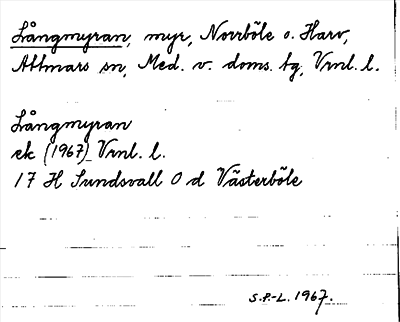 Långmyran, myr, Norrböle o. Harv,
Attmars sn, Med. v. doms. tg, Vrnl. l.
Långmyran
ek (1967) Vrnl. l.
17 H Sundsvall O d Västerböle
S.P.-L. 1967.